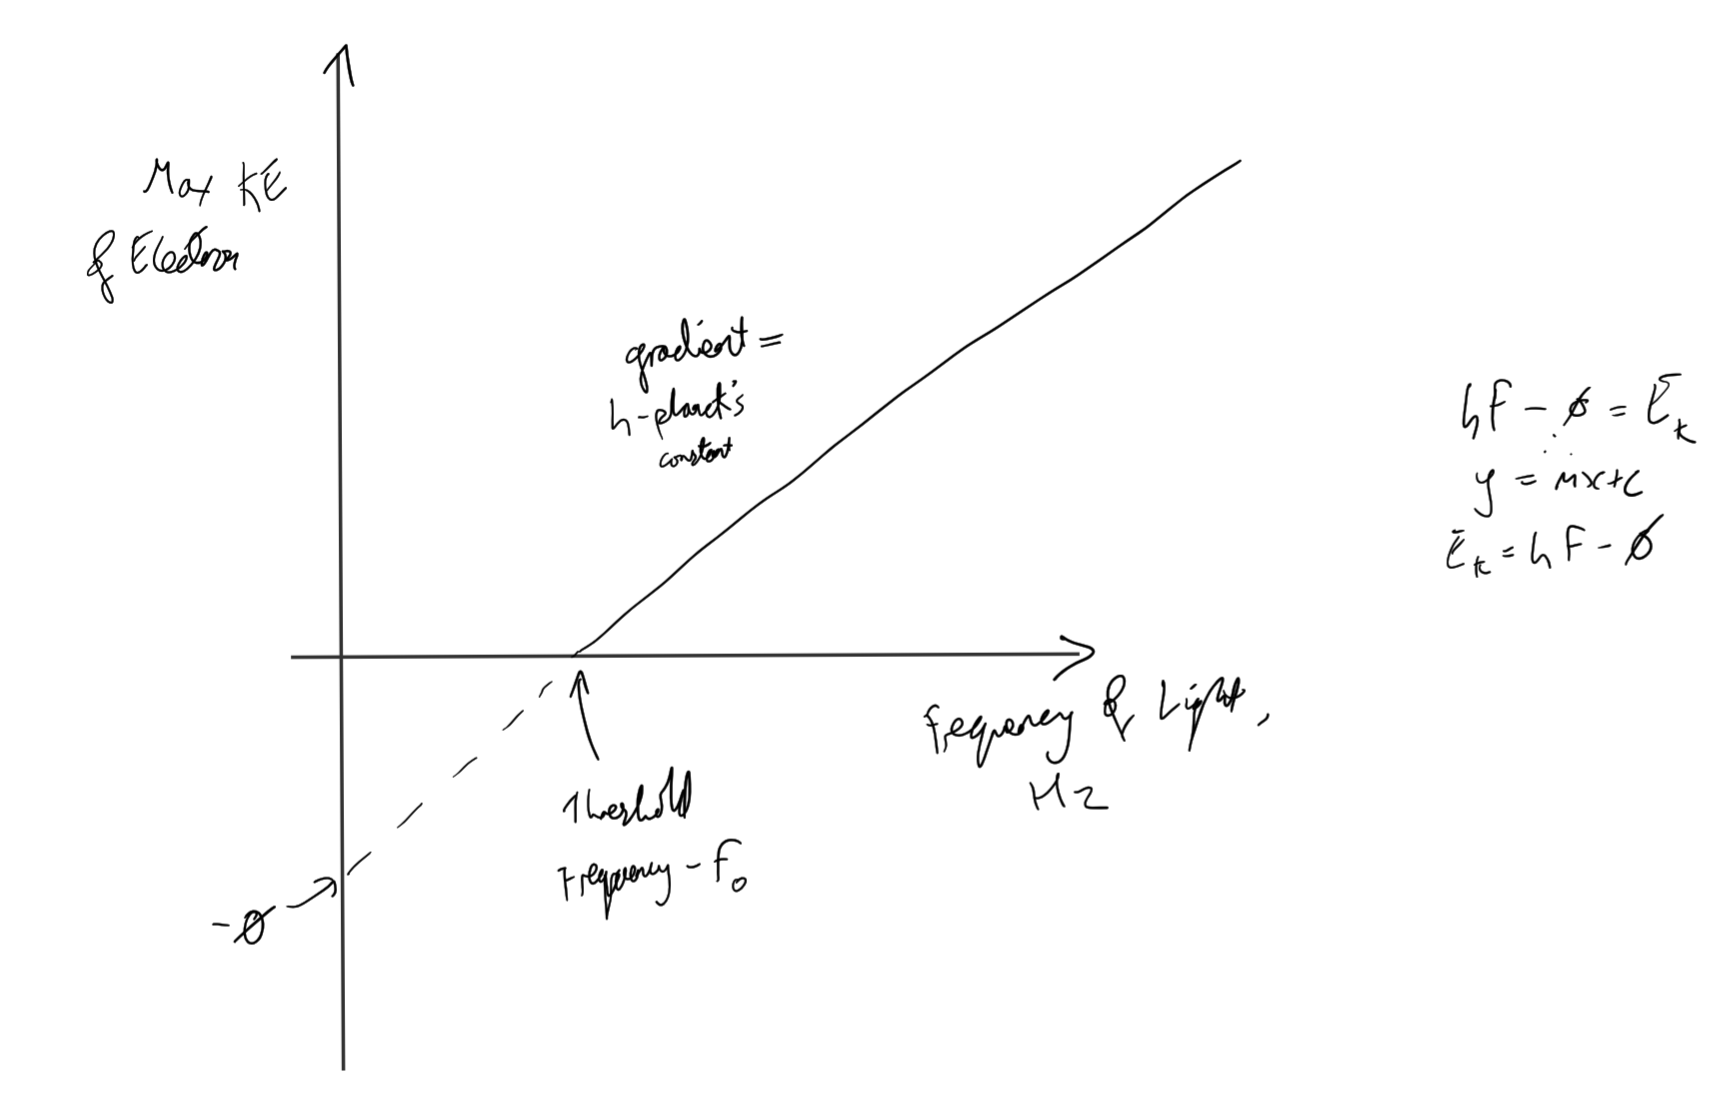 Max KE
of Electron
gradient =
h-planck's
constant
hF - ø = Eₖ
∴
y = mx+c
Eₖ = hF - ø
frequency of Light,
Hz
Threshold
Frequency - F₀
-ø